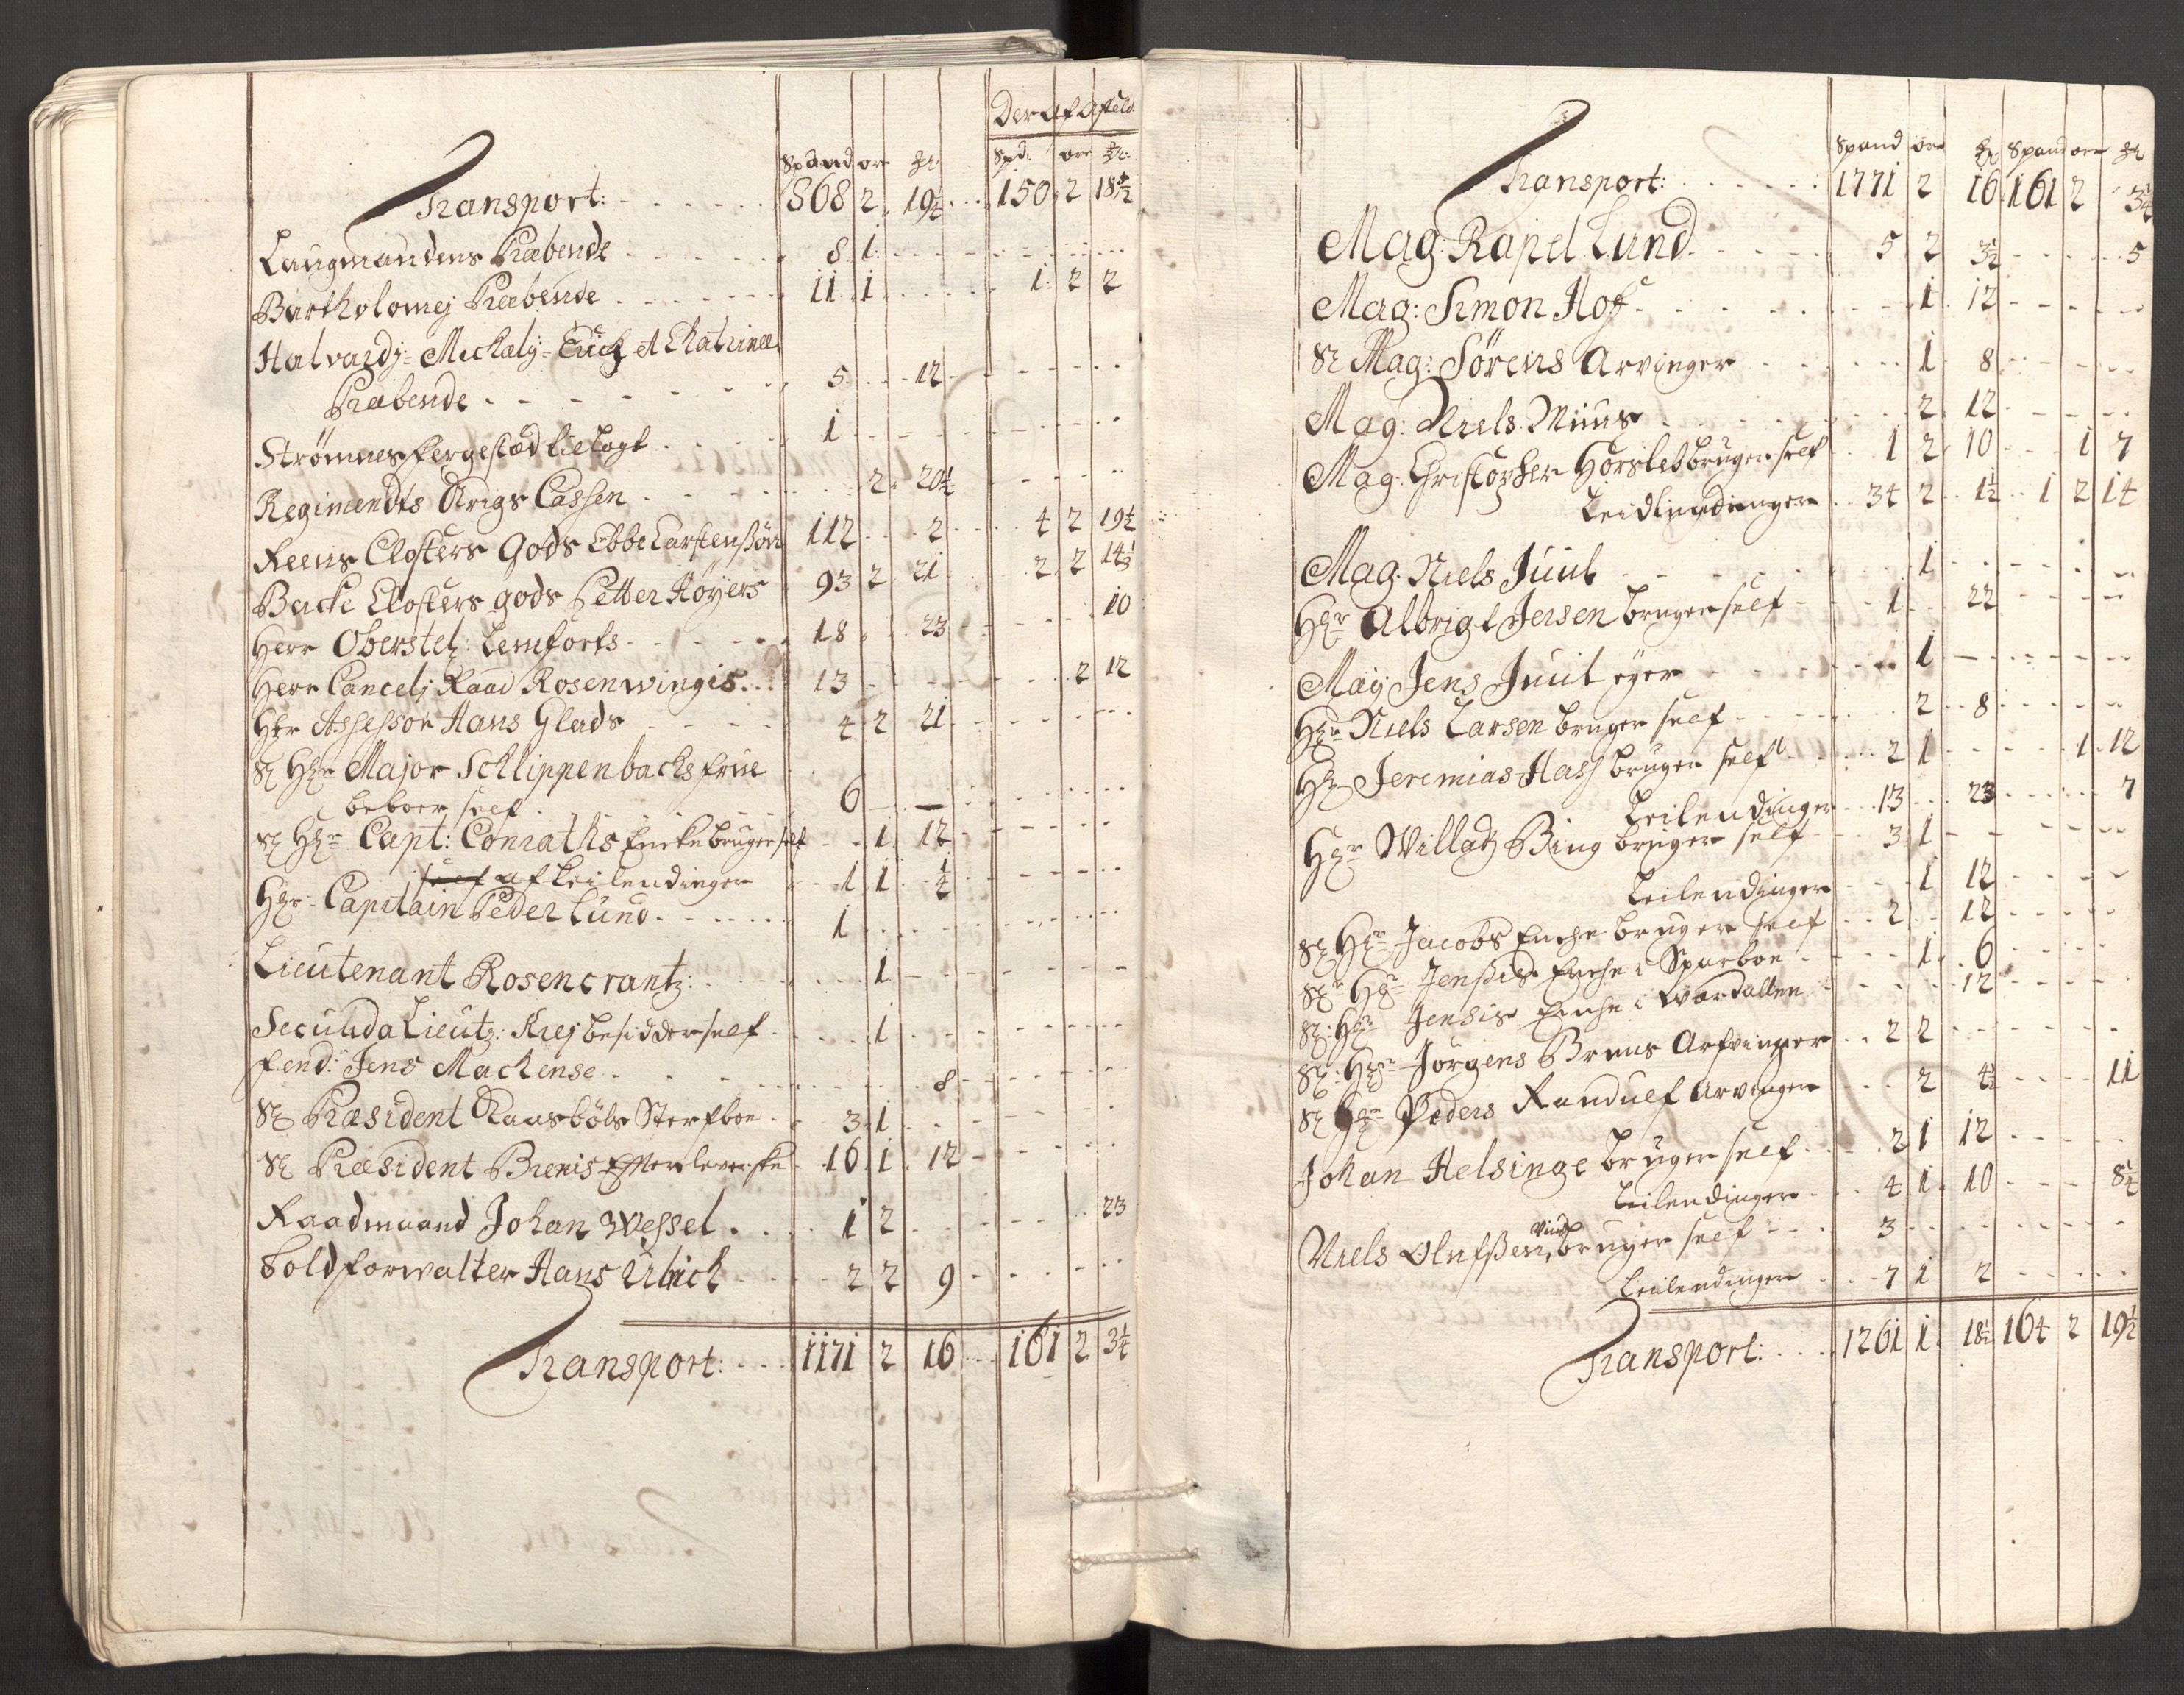 Der Af Affeld
Spand or Spd: ore
Transport: 868 2 19¼ 150 2 18½
Laugmandens Præbende 8 1
Bartholomej Præbende 11 1 1 2 2
Halvardj= Michælj= Erici et Chatrinæ
Præbende 5 12
Strømmes fergestæd tillagt 1
Regimendts Krigs Cassen 2 20½
Reens Closters Gods Ebbe Carstensøn 112 2 4 2 19¼
Backe Closters gods Petter Höyers 93 2 21 2 2 14⅓
Herr Oberstel: Lemforts 18 23 10
Herr Cancelj Raad Rosenwingis 13 2 12
Hr Assessor Hans Glads 4 2 21
Sl Hr Major Schlippenbachs frue
beboer self 6
Sl Hr Capt: Conraths Encke bruger self 1 12
self af Leilendinger 1 1 ¼
Hr Capitain Peder Lund 1
Lieutenant Rosencrantz: 1
Secunda Lieut: Krej besidder self 1
Fend: Jens Machense 8
Sl Præsident Kaasbøls Sterfboe 3 1
Sl Præsident Brenis Efterleverske 16 1 12
Raadmand Johan Wessel 1 2 23
Toldforwalter Hans Ulrich 2 2 9
Transport: 1171 2 16 161 2 3¼
Spand ore Spand ore
Transport: 1771 2 16 161 2 3¼
Mag: Kapel Lund 5 2 3½ 5
Mag: Simon Hof 1 12
Sl Mag: Sörens Arvinger 1 8
Mag: Niels Muus 2 12
Mag: Christopher Horsleb bruger self 1 2 10 1 7
Leidlendinger 34 2 1½ 1 2 14
Mag. Niels Juul 1
Hr Albrigt Jersen bruger self 1 22
Mag Jens Juul eyer 1
Hr Niels Larsen bruger self 2 8
Hr Jeremias Hass bruger self 2 1 1 12
Leilendinger 13 23 7
Hr Willatz Bing bruger self 3 1
Leilendinger 1 12
Sl Hr Jacobs Enche bruger self 2 12
Sl Hr Jensis Enche i Sparboe 1 6
Sl: Hr Jensis Enche i Wærdallen 12
Sl: Hr Jörgens Bruns Arfvinger 2 2
Sl Hr Peders Randulf Arvinger 2 4½ 11
Johan Helsinge bruger self 2 1 12
Leilendinger 4 1 10 8¼
Niels Olufssen, bruger self 3
Leilendinger 7 1 2
Transport: 1261 1 18½ 164 2 19½